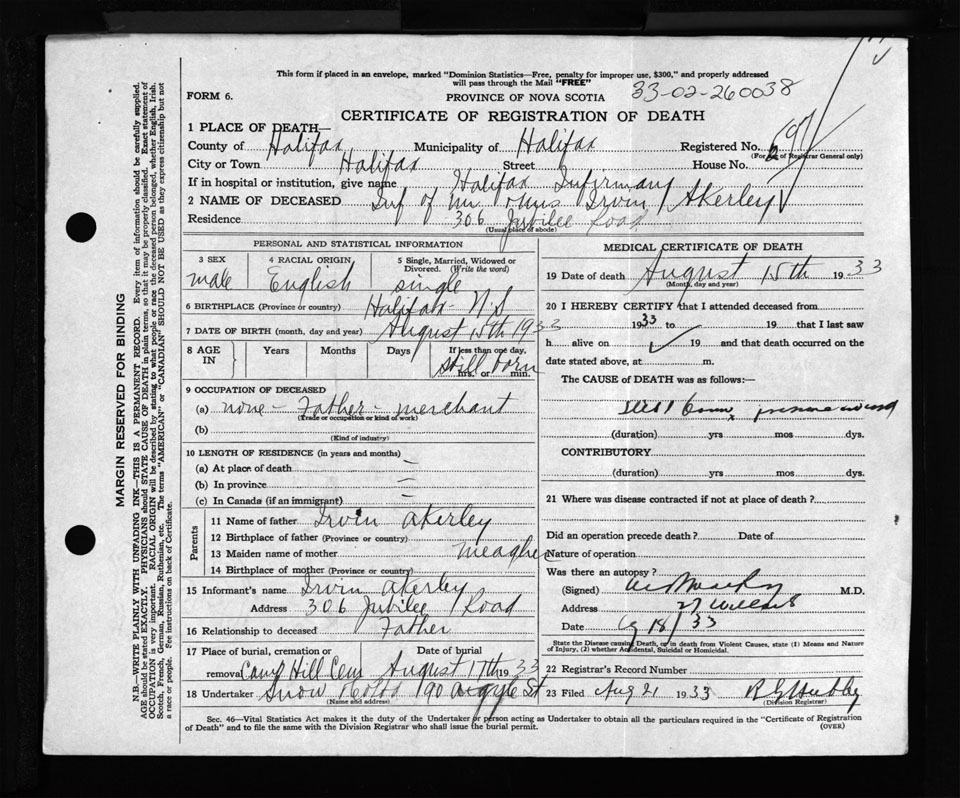 This form if placed in an envelope, marked "Dominion Statistics—Free, penalty for improper use, $300," and properly addressed
will pass through the Mail "FREE"
FORM 6.
PROVINCE OF NOVA SCOTIA
33-02-260038
CERTIFICATE OF REGISTRATION OF DEATH
1 PLACE OF DEATH—
County of Halifax Municipality of Halifax Registered No.
(For use of Registrar General only)
City or Town Halifax Street House No.
If in hospital or institution, give name Halifax Infirmary
2 NAME OF DECEASED Inf of Mr Irvin Akerley
Residence 306 Jubilee Road
(Usual place of abode)
PERSONAL AND STATISTICAL INFORMATION
3 SEX
male
4 RACIAL ORIGIN
English
5 Single, Married, Widowed or
Divorced. (Write the word)
single
6 BIRTHPLACE (Province or country) Halifax - N.S
7 DATE OF BIRTH (month, day and year) August 15th 1933
8 AGE IN Years Months Days If less than one day,
hrs. or min.
still born
9 OCCUPATION OF DECEASED
(a) none - Father - merchant
(Trade or occupation or kind of work)
(b)
(Kind of industry)
10 LENGTH OF RESIDENCE (in years and months)
(a) At place of death
(b) In province
(c) In Canada (if an immigrant)
Parents
11 Name of father Irvin Akerley
12 Birthplace of father (Province or country)
13 Maiden name of mother Meagher
14 Birthplace of mother (Province or country)
15 Informant's name Irvin Akerley
Address 306 Jubilee Road
16 Relationship to deceased Father
17 Place of burial, cremation or
removal Camp Hill Cem
Date of burial
August 17th 1933
18 Undertaker Snow 90 Argyle St
(Name and address)
MEDICAL CERTIFICATE OF DEATH
19 Date of death August 15th 1933
(Month, day and year)
20 I HEREBY CERTIFY that I attended deceased from
1933 to 19 that I last saw
h alive on 19 and that death occurred on the
date stated above, at m.
The CAUSE of DEATH was as follows:—
(duration) yrs mos dys.
CONTRIBUTORY
(duration) yrs mos dys.
21 Where was disease contracted if not at place of death?
Did an operation precede death? Date of
Nature of operation
Was there an autopsy?
(Signed) M.D.
Address
Date 18/33
State the Disease causing Death, or in death from Violent Causes, state (1) Means and Nature
of Injury, (2) whether Accidental, Suicidal or Homicidal.
22 Registrar's Record Number
23 Filed Aug 21 1933
(Division Registrar)
Sec. 46—Vital Statistics Act makes it the duty of the Undertaker or person acting as Undertaker to obtain all the particulars required in the "Certificate of Registration
of Death" and to file the same with the Division Registrar who shall issue the burial permit.
(OVER)
MARGIN RESERVED FOR BINDING
N.B.—WRITE PLAINLY WITH UNFADING INK—THIS IS A PERMANENT RECORD. Every item of information should be carefully supplied.
AGE should be stated EXACTLY. PHYSICIANS should STATE CAUSE OF DEATH in plain terms, so that it may be properly classified. Exact statement of
OCCUPATION is very important. RACIAL ORIGIN will be described by stating to what people or race the deceased person belonged, whether English, Irish,
Scotch, French, German, Russian, Ruthenian, etc. The terms "AMERICAN" or "CANADIAN" SHOULD NOT BE USED as they express citizenship but not
a race or people. See instructions on back of Certificate.